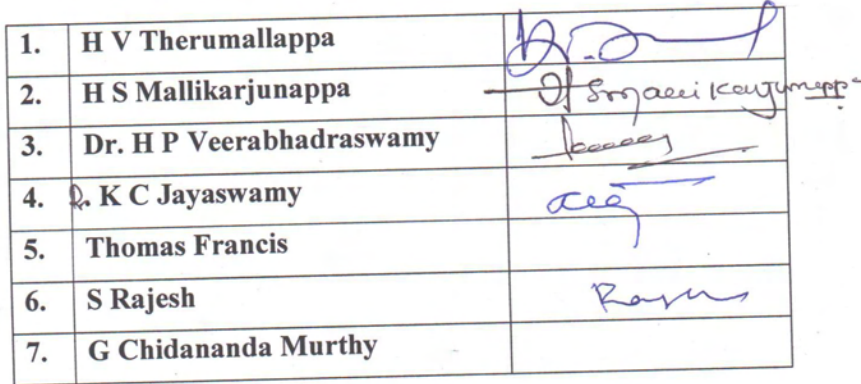 1. H V Therumallappa
2. H S Mallikarjunappa H Smallikarjunappa
3. Dr. H P Veerabhadraswamy
4. D. K C Jayaswamy
5. Thomas Francis
6. S Rajesh Rajesh
7. G Chidananda Murthy